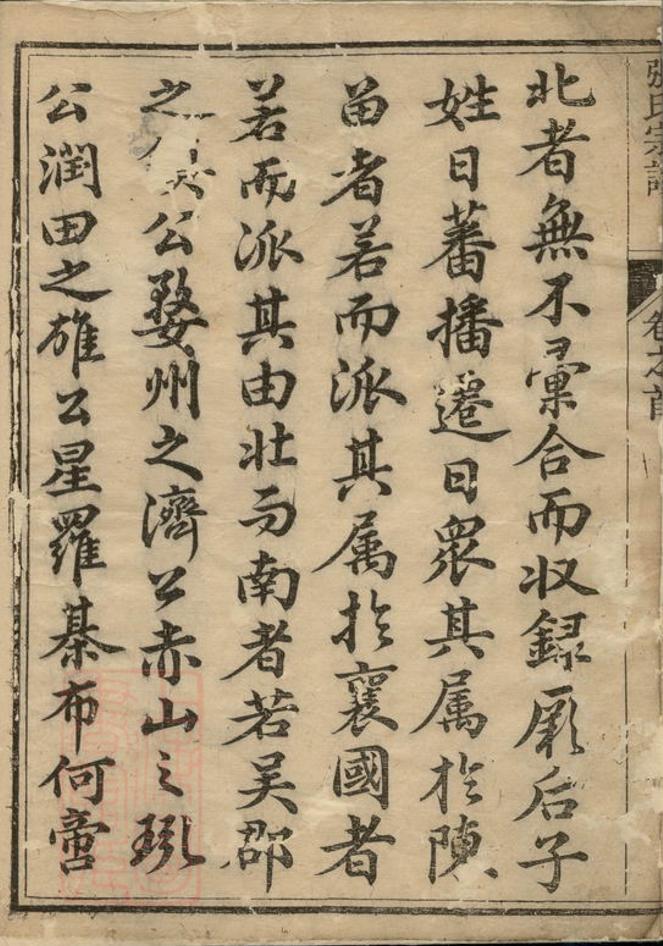 張氏宗譜 卷之首
北者無不彙合而収録厥后子
姓日蕃播遷日衆其属於陳
畱者若而派其属於襄國者
若而派其由北而南者若吴郡
之 公婺州之濟公赤山之珎
公潤田之雄公星羅棊布何啻